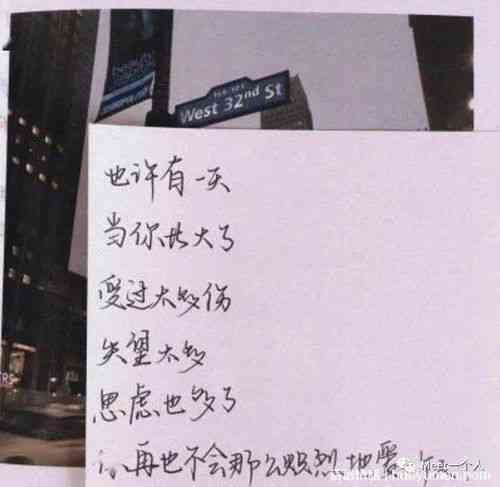 beauty
West 32nd St
也许有一天
当你长大了
受过太多伤
失望太多
思虑也多了
你再也不会那么热烈地爱
Meet一个人